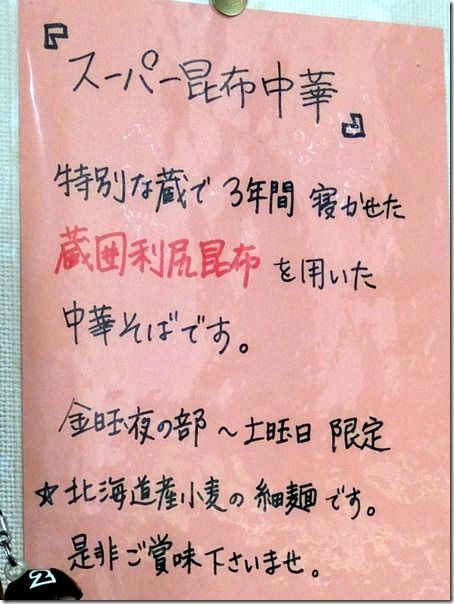 『スーパー昆布中華』
特別な蔵で3年間 寝かせた
蔵囲利尻昆布 を用いた
中華そばです。
金旺夜の部 ～ 土旺日 限定
☆北海道産小麦の細麺です。
是非ご賞味下さいませ。